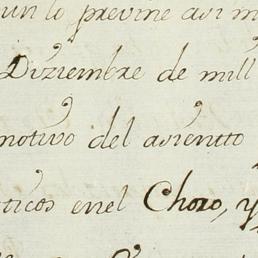 un lo previne asi m
Diziembre de mill
motivo del asientto
ticos enel Choro, y